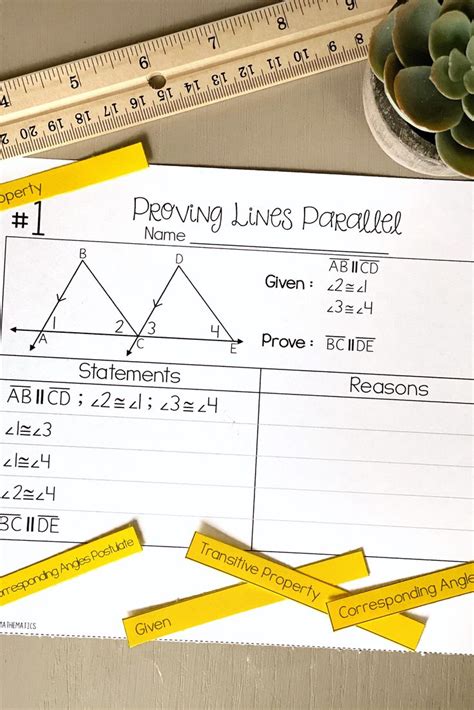 4 5 6 7 8 9
operty
#1
Proving Lines Parallel
Name
B
D
1
2
3
4
A
C
E
Given : AB∥CD
∠2≅∠1
∠3≅∠4
Prove : BC∥DE
Statements
Reasons
AB∥CD ; ∠2≅∠1 ; ∠3≅∠4
∠1≅∠3
∠1≅∠4
∠2≅∠4
BC∥DE
orresponding Angles Postulate
Transitive Property
Corresponding Angle
Given
MATHEMATICS